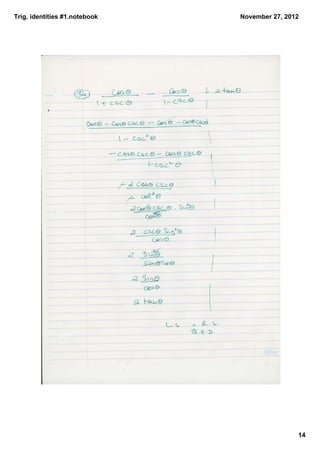 Trig. identities #1.notebook November 27, 2012
30) cosθ / 1 + cscθ − cosθ / 1 − cscθ | 2 tanθ
cosθ − cosθ cscθ − cosθ − cosθ cscθ
1 − csc²θ
− cosθ cscθ − cosθ cscθ
1 − csc²θ
− 2 cosθ cscθ
− cot²θ
2 cosθ cscθ . sin²θ
cos²θ
2 cscθ sin²θ
cosθ
2 sin²θ
sinθ cosθ
2 sinθ
cosθ
2 tanθ
L.S. = R.S.
Q.E.D.
14